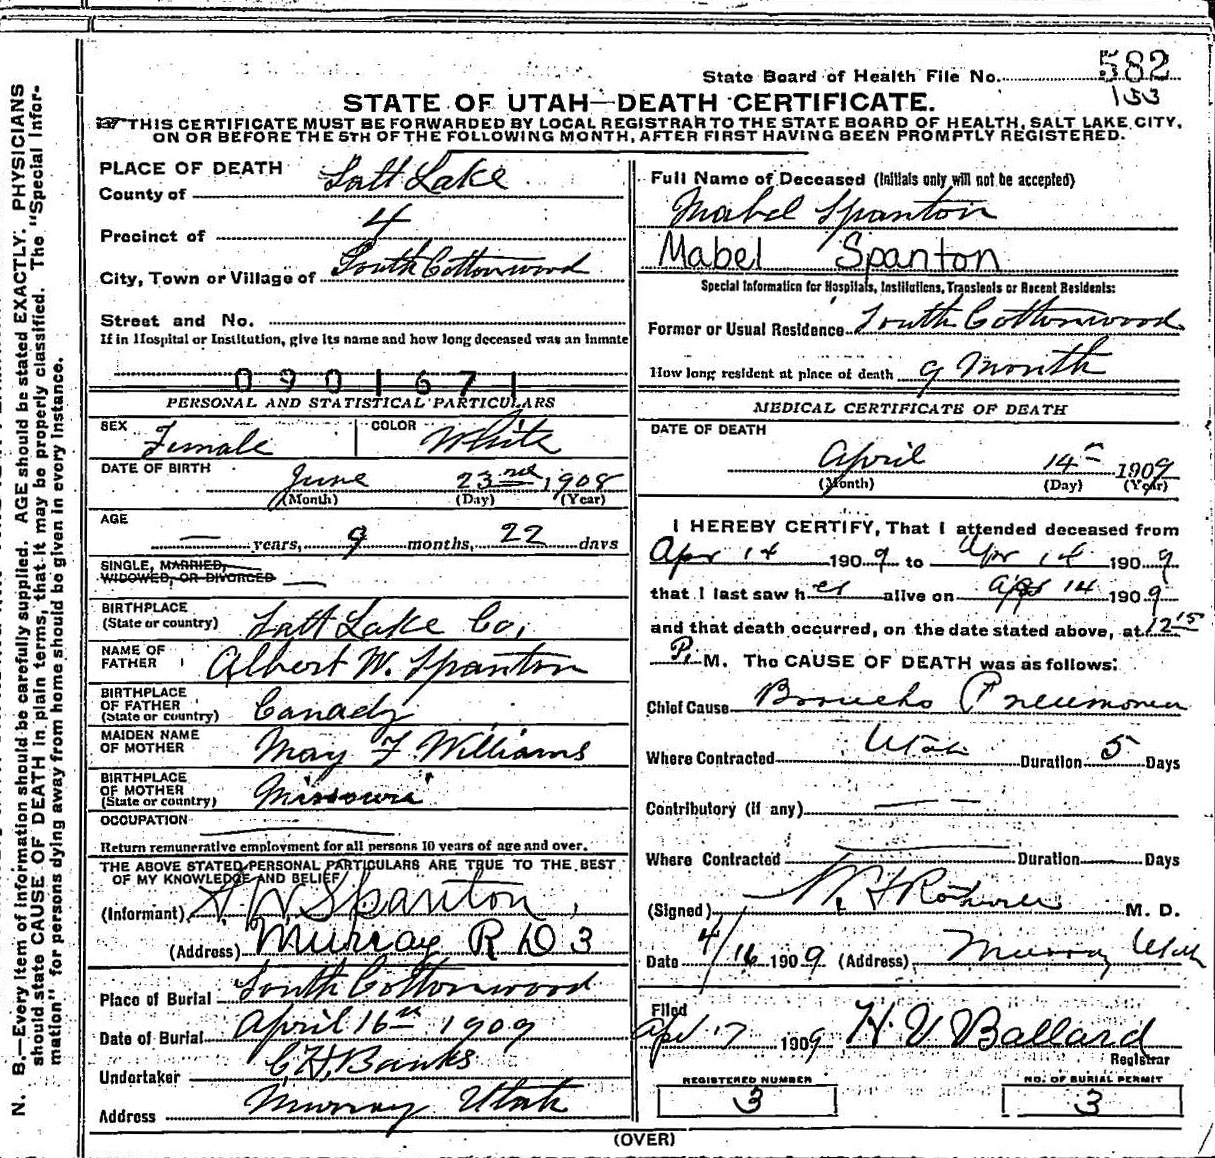 State Board of Health File No. 582
153
STATE OF UTAH—DEATH CERTIFICATE.
THIS CERTIFICATE MUST BE FORWARDED BY LOCAL REGISTRAR TO THE STATE BOARD OF HEALTH, SALT LAKE CITY,
ON OR BEFORE THE 5TH OF THE FOLLOWING MONTH, AFTER FIRST HAVING BEEN PROMPTLY REGISTERED.
N. B.—Every item of information should be carefully supplied. AGE should be stated EXACTLY. PHYSICIANS
should state CAUSE OF DEATH in plain terms, that it may be properly classified. The "Special Infor-
mation" for persons dying away from home should be given in every instance.
PLACE OF DEATH
County of Salt Lake
Precinct of 4
City, Town or Village of South Cottonwood
Street and No.
If in Hospital or Institution, give its name and how long deceased was an inmate
0901671
PERSONAL AND STATISTICAL PARTICULARS
SEX Female COLOR White
DATE OF BIRTH June 23rd 1908
(Month) (Day) (Year)
AGE
— years, 9 months, 22 days
SINGLE, MARRIED,
WIDOWED, OR DIVORCED —
BIRTHPLACE
(State or country) Salt Lake Co,
NAME OF
FATHER Albert W. Spanton
BIRTHPLACE
OF FATHER
(State or country) Canady
MAIDEN NAME
OF MOTHER May F Williams
BIRTHPLACE
OF MOTHER
(State or country) Missouri
OCCUPATION
Return remunerative employment for all persons 10 years of age and over.
THE ABOVE STATED PERSONAL PARTICULARS ARE TRUE TO THE BEST
OF MY KNOWLEDGE AND BELIEF
(Informant) A W Spanton
(Address) Murray R D 3
Place of Burial South Cottonwood
Date of Burial April 16th 1909
Undertaker C H. Banks
Address Murray Utah
Full Name of Deceased (Initials only will not be accepted)
Mabel Spanton
Mabel Spanton
Special Information for Hospitals, Institutions, Transients or Recent Residents:
Former or Usual Residence South Cottonwood
How long resident at place of death 9 Month
MEDICAL CERTIFICATE OF DEATH
DATE OF DEATH
April 14 1909
(Month) (Day) (Year)
I HEREBY CERTIFY, That I attended deceased from
Apr 14 1909 to Apr 14 1909
that I last saw her alive on Apr 14 1909
and that death occurred, on the date stated above, at 12 15
P. M. The CAUSE OF DEATH was as follows:
Chief Cause Broncho Pneumonia
Where Contracted Utah Duration 5 Days
Contributory (if any)
Where Contracted Duration Days
(Signed) M. D.
Date 4/16 1909 (Address) Murray Utah
Filed
Apl 17 1909 H V Ballard
Registrar
REGISTERED NUMBER
3
NO. OF BURIAL PERMIT
3
(OVER)